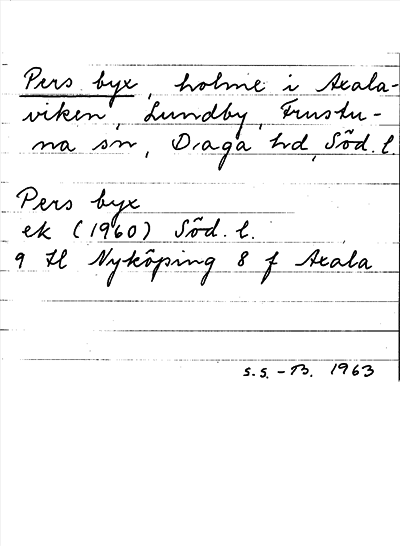 Pers byx, holme i Axala-
viken, Lundby, Frustu-
na sn, Daga hd, Söd. l.
Pers byx
ek (1960) Söd. l.
9 H Nyköping 8 f Axala
S.S. - B. 1963